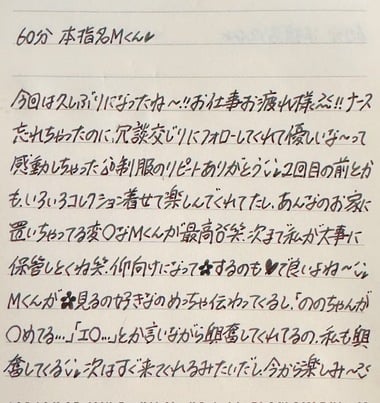 60分 本指名Mくん♥
今回は久しぶりになったね〜!!お仕事お疲れ様です!!ナース
忘れちゃったのに、冗談交じりにフォローしてくれて優しいな〜って
感動しちゃった 制服のリピートありがとう 2回目の前とか
も、いろいろコレクション着せて楽しんでくれてたし、あんなのお家に
置いちゃってる変〇なMくんが最高です笑 次まで私が大事に
保管しとくね笑 仰向けになって✿するのも♥で良いよね〜
Mくんが✿見るの好きなのめっちゃ伝わってくるし、「ののちゃんが
〇めてる…」「エロ…」とか言いながら興奮してくれてるの、私も興
奮してくる 次はすぐ来てくれるみたいだし、今から楽しみ〜